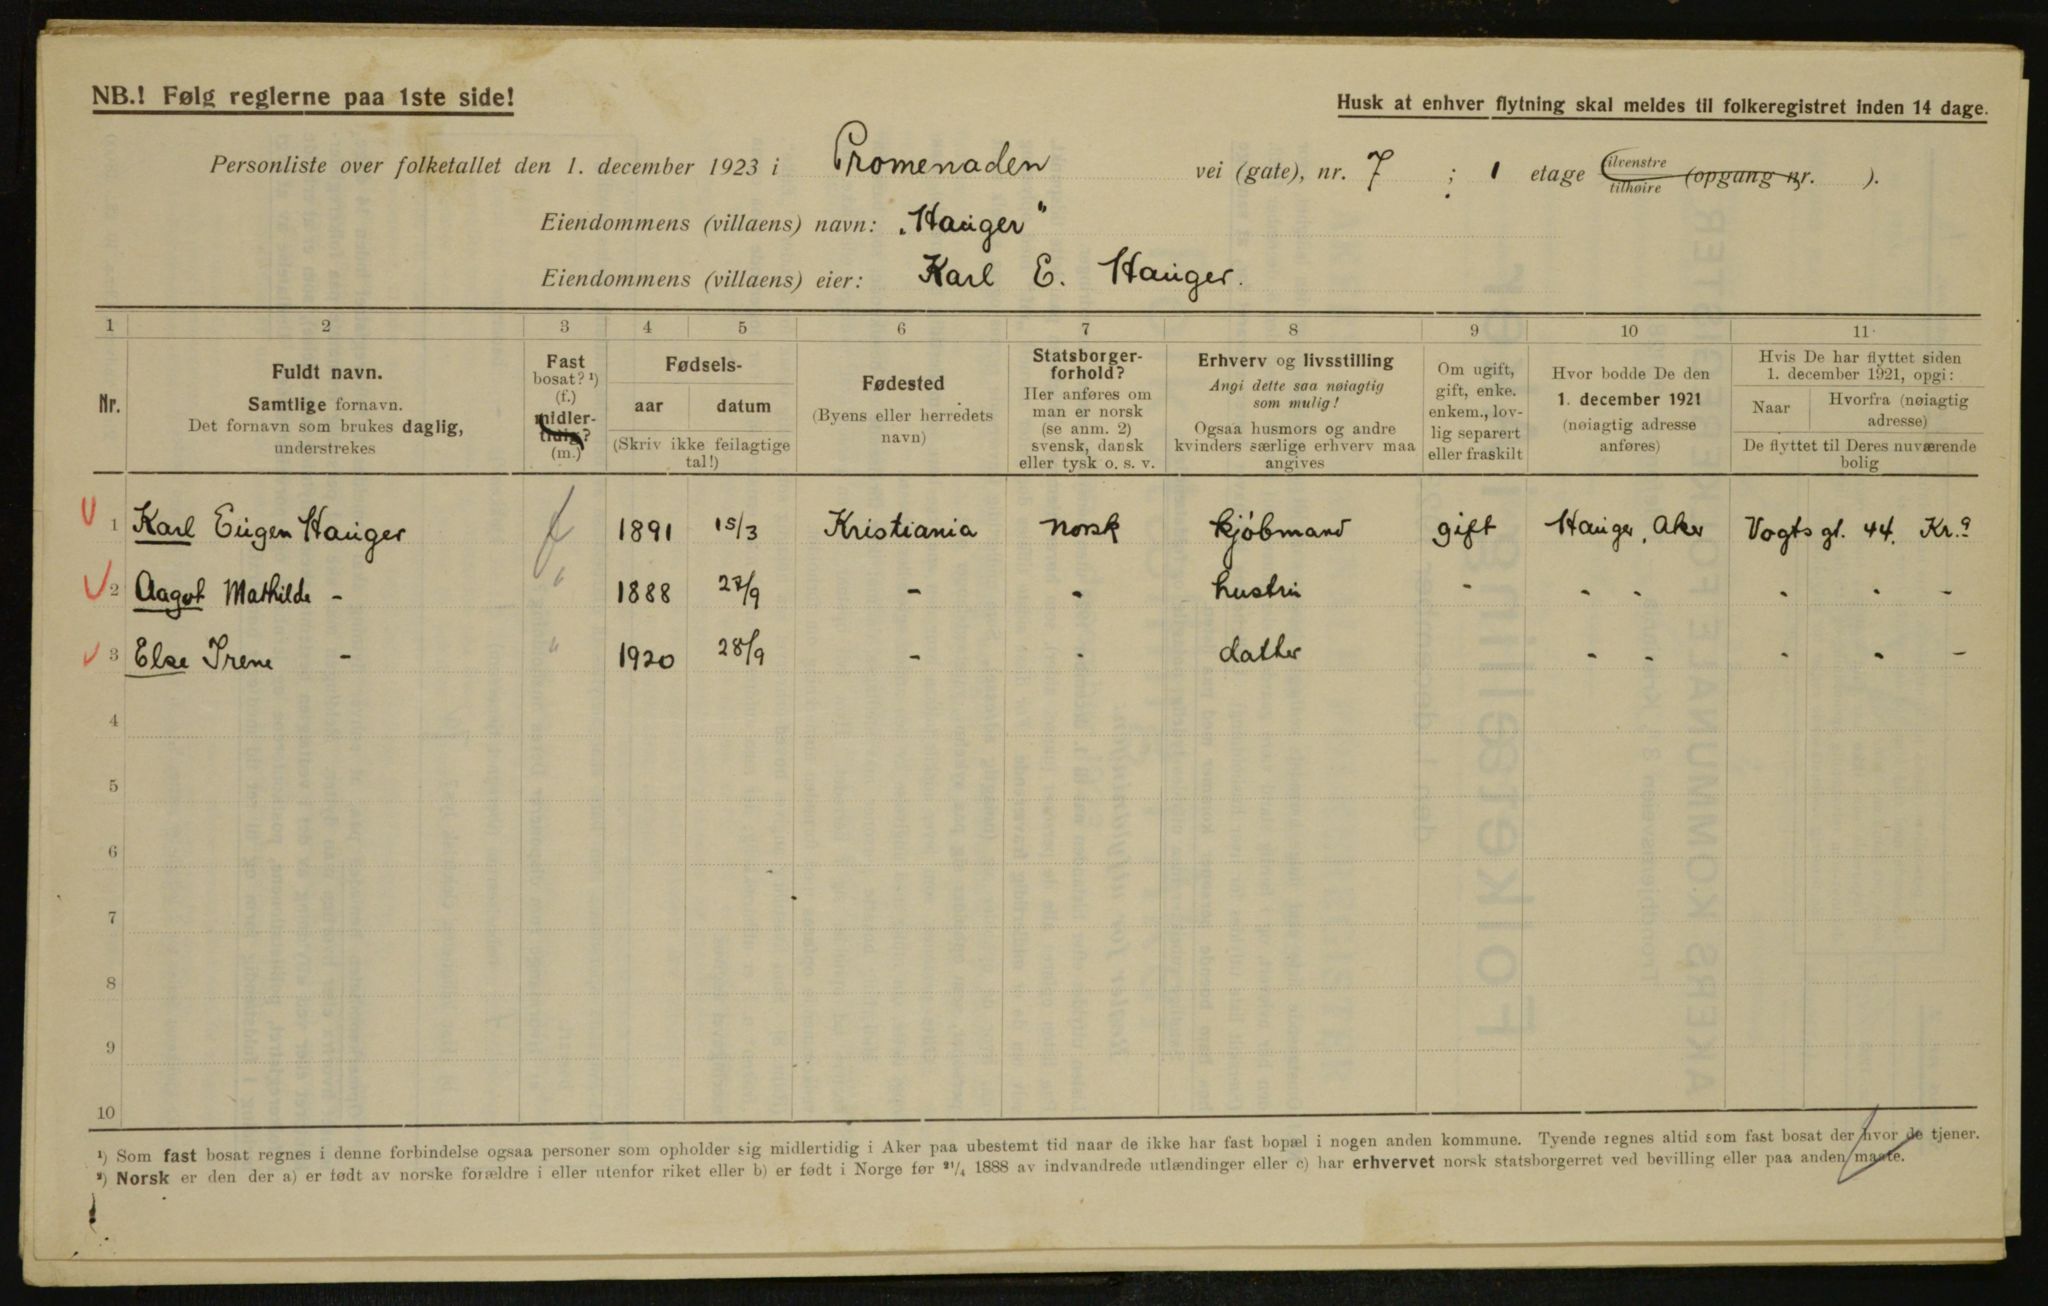 NB.! Følg reglerne paa 1ste side!
Husk at enhver flytning skal meldes til folkeregistret inden 14 dage.
Personliste over folketallet den 1. december 1923 i Promenaden vei (gate), nr. 7 ; 1 etage tilvenstre tilhøire (opgang nr. ).
Eiendommens (villaens) navn: „Hauger"
Eiendommens (villaens) eier: Karl E. Hauger.
1 2 3 4 5 6 7 8 9 10 11
Nr.
Fuldt navn.
Samtlige fornavn.
Det fornavn som brukes daglig,
understrekes
Fast
bosat? ¹)
(f.)
midler-
tidig?
(m.)
Fødsels-
aar datum
(Skriv ikke feilagtige
tal!)
Fødested
(Byens eller herredets
navn)
Statsborger-
forhold?
Her anføres om
man er norsk
(se anm. 2)
svensk, dansk
eller tysk o. s. v.
Erhverv og livsstilling
Angi dette saa nøiagtig
som mulig!
Ogsaa husmors og andre
kvinders særlige erhverv maa
angives
Om ugift,
gift, enke.
enkem., lov-
lig separert
eller fraskilt
Hvor bodde De den
1. december 1921
(nøiagtig adresse
anføres)
Hvis De har flyttet siden
1. december 1921, opgi:
Naar
Hvorfra (nøiagtig
adresse)
De flyttet til Deres nuværende
bolig
1 Karl Eugen Hauger f 1891 15/3 Kristiania norsk kjøbmand gift Hauger, Aker Vogts gt. 44. Kr.a
2 Aagot Mathilde - " 1888 27/9 - - hustru - - - - - -
3 Else Irene - " 1920 28/9 - - datter - - - - -
4
5
6
7
8
9
10
¹) Som fast bosat regnes i denne forbindelse ogsaa personer som opholder sig midlertidig i Aker paa ubestemt tid naar de ikke har fast bopæl i nogen anden kommune. Tyende regnes altid som fast bosat der hvor de tjener.
²) Norsk er den der a) er født av norske forældre i eller utenfor riket eller b) er født i Norge før ²¹/₄ 1888 av indvandrede utlændinger eller c) har erhvervet norsk statsborgerret ved bevilling eller paa anden maate.